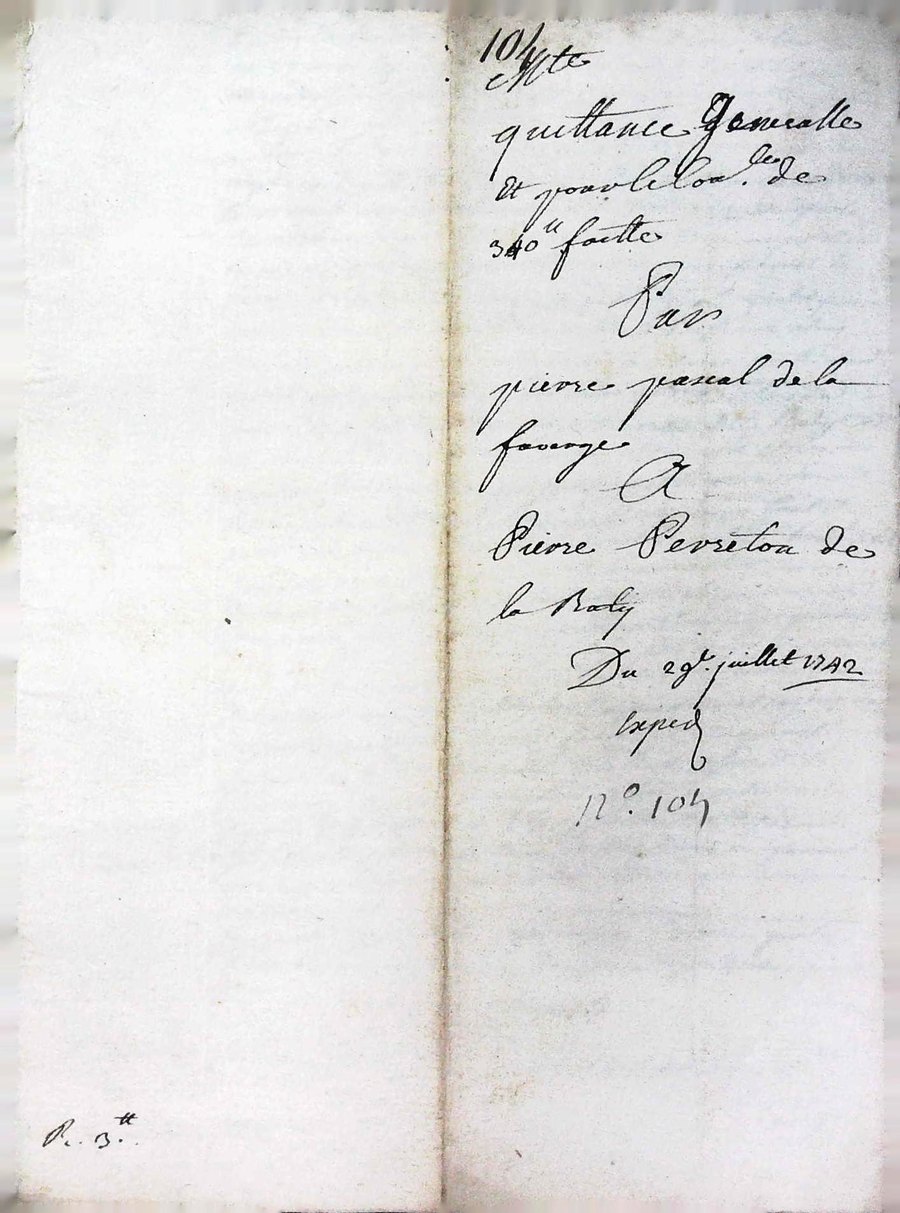 104
quittance Generalle
et pour de
340ᵗᵗ faitte
Par
pierre pascal de la
faverge
A
Pierre Perreton de
la Baty
Du 29ᵉ. juillet 1742
Exped
N°. 104
R. 3.ᵗᵗ